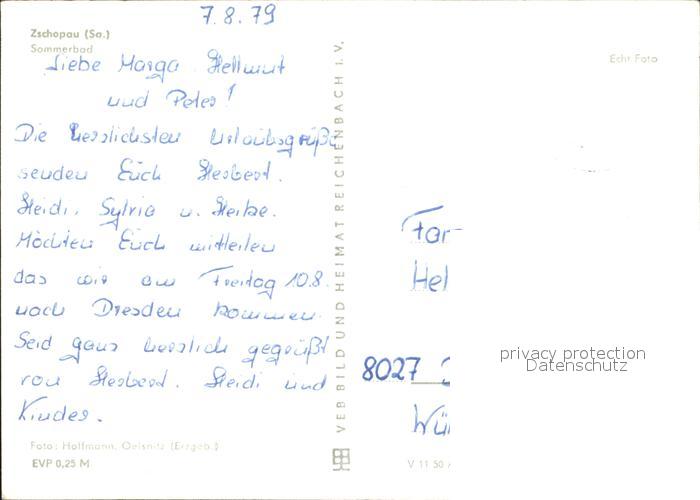 7.8.79
Zschopau (Sa.)
Sommerbad
Liebe Marga Hellmut
und Peter!
Die herzlichsten Urlaubsgrüße
senden Euch Herbert.
Heidi, Sylvia u. Heike.
Möchten Euch mitteilen
das wir am Freitag 10.8.
nach Dresden kommen.
Seid ganz herzlich gegrüßt
von Herbert. Heidi und
Kinder.
Foto: Hoffmann, Oelsnitz (Erzgeb.)
EVP 0,25 M
VEB BILD UND HEIMAT REICHENBACH I. V.
Echt Foto
Fam
Hel
8027
Wü
V 11 50
privacy protection
Datenschutz